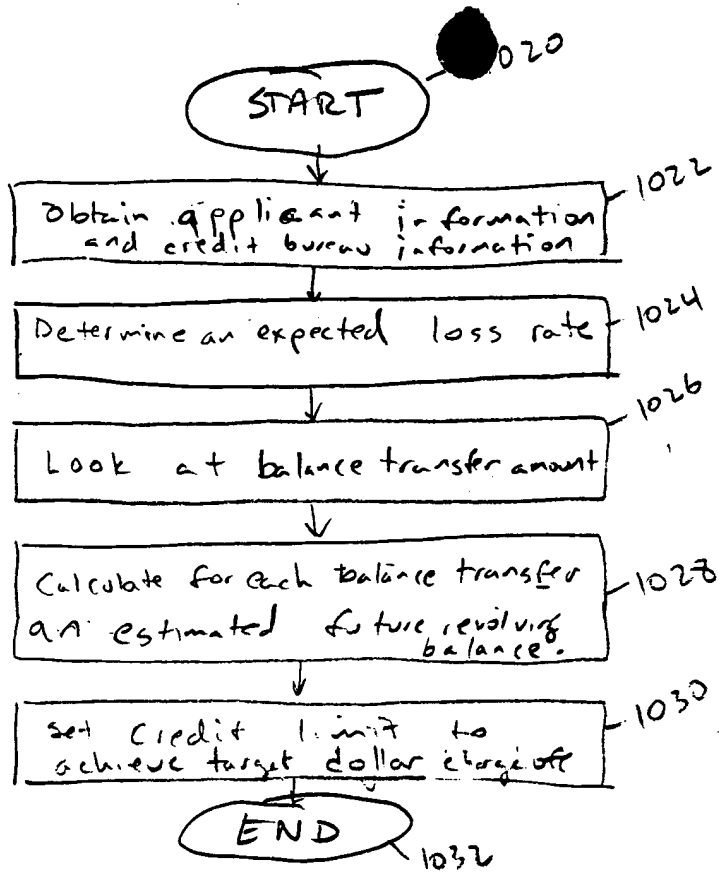 020
START
1022
Obtain applicant information
and credit bureau information
1024
Determine an expected loss rate
1026
Look at balance transfer amount
Calculate for each balance transfer
1028
an estimated future revolving
balance.
1030
Set Credit limit to
achieve target dollar charge off
END
1032